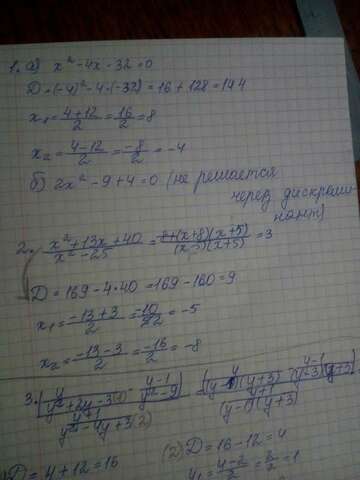 1. а) x² - 4x - 32 = 0
D = (-4)² - 4·(-32) = 16 + 128 = 144
x₁ = (4+12)/2 = 16/2 = 8
x₂ = (4-12)/2 = -8/2 = -4
б) 2x² - 9 + 4 = 0 (не решается
через дискрими-
нант)
2. (x² + 13x + 40)/(x² - 25) = (x+8)(x+5)/(x-5)(x+5) = 3
D = 169 - 4·40 = 169 - 160 = 9
x₁ = (-13+3)/2 = -10/2 = -5
x₂ = (-13-3)/2 = -16/2 = -8
3. (y/(y²+2y-3(1)) - (y-1)/(y²-9))
(y+1)/(y²-4y+3(2))
(y-1)(y+3)
(2) D = 16 - 12 = 4
D = 4 + 12 = 16
y₁ = (4-2)/2 = 2/2 = 1